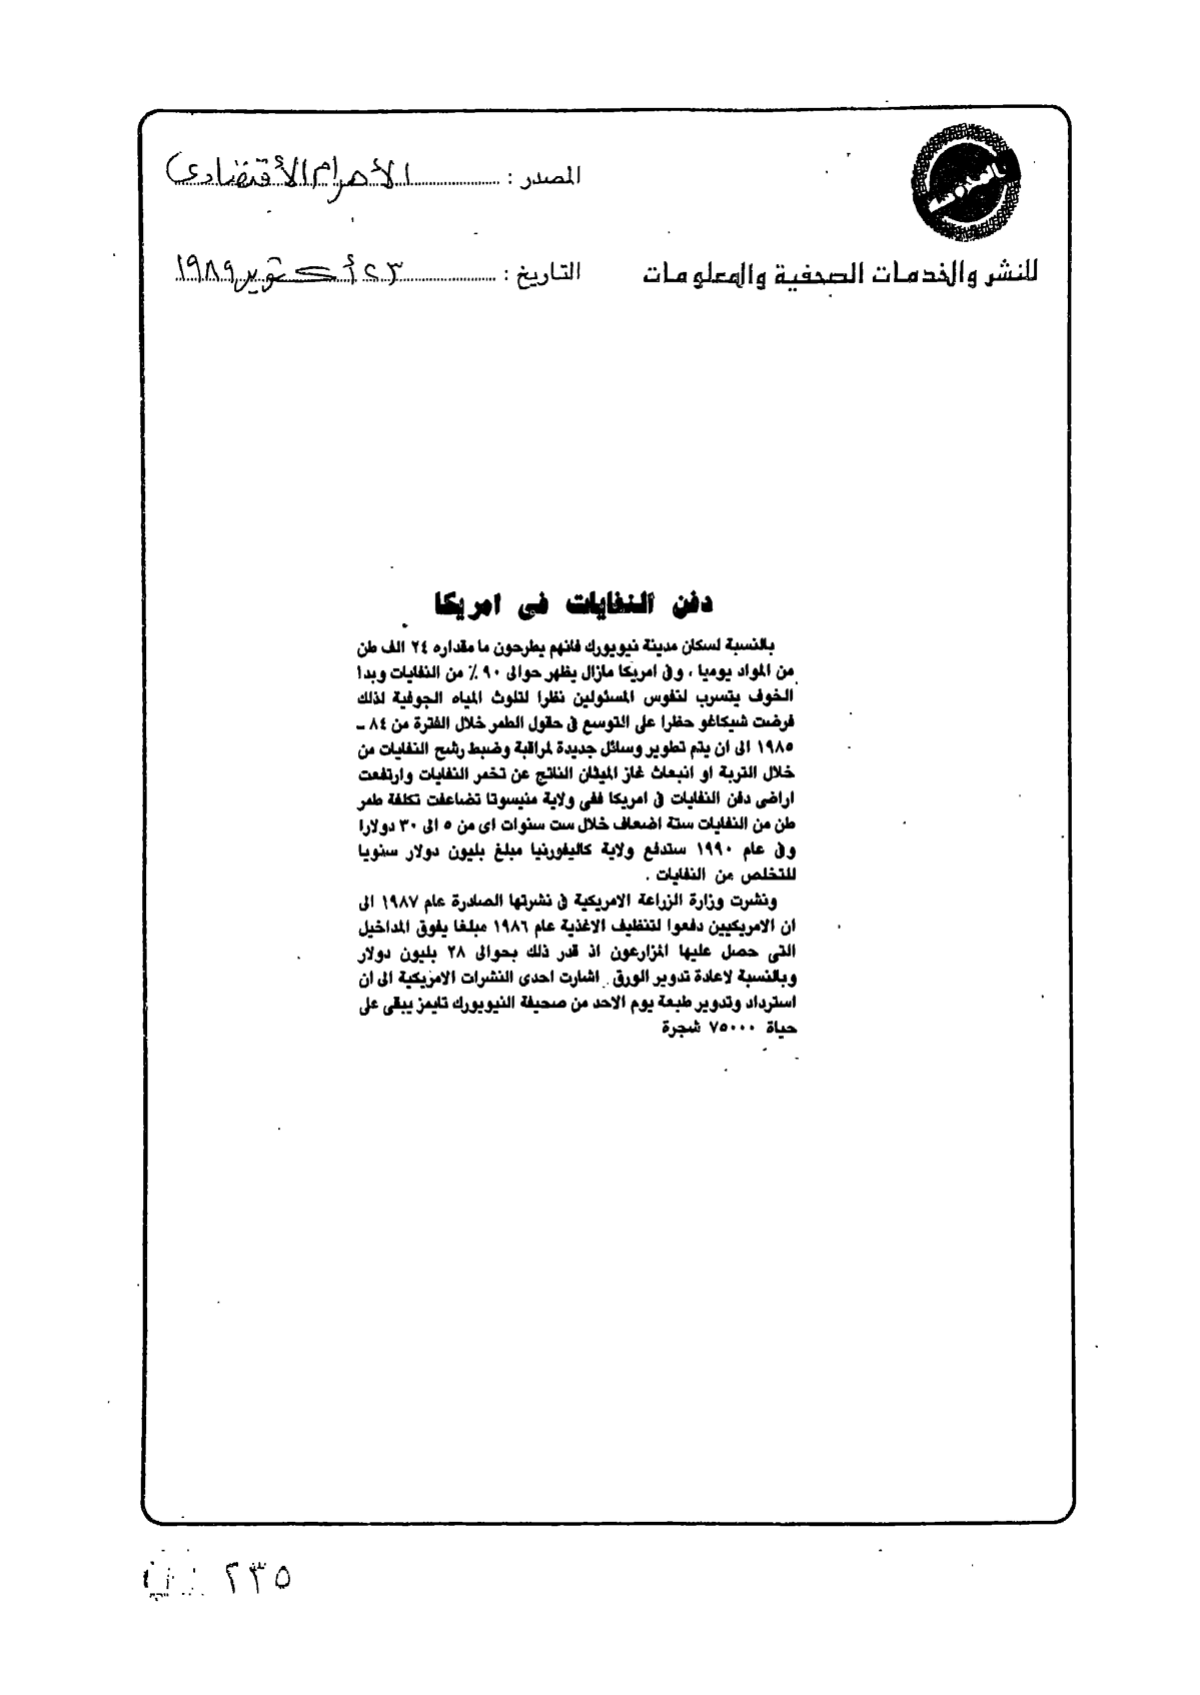 المصدر : الأهرام الأقتصادى
للنشر والخدمات الصحفية والمعلومات
التاريخ : ٢٣ أكتوبر ١٩٨٩
دفن النفايات فى امريكا
بالنسبة لسكان مدينة نيويورك فانهم يطرحون ما مقداره ٢٤ الف طن
من المواد يوميا ، وفى امريكا مازال يظهر حوالى ٩٠ ٪ من النفايات وبدا
الخوف يتسرب لنفوس المسئولين نظرا لتلوث المياه الجوفية لذلك
فرضت شيكاغو حظرا على التوسع فى حقول الطمر خلال الفترة من ٨٤ ـ
١٩٨٥ الى ان يتم تطوير وسائل جديدة لمراقبة وضبط رشح النفايات من
خلال التربة او انبعاث غاز الميثان الناتج عن تخمر النفايات وارتفعت
اراضى دفن النفايات فى امريكا ففى ولاية منيسوتا تضاعفت تكلفة طمر
طن من النفايات ستة اضعاف خلال ست سنوات اى من ٥ الى ٣٠ دولارا
وفى عام ١٩٩٠ ستدفع ولاية كاليفورنيا مبلغ بليون دولار سنويا
للتخلص من النفايات .
ونشرت وزارة الزراعة الامريكية فى نشرتها الصادرة عام ١٩٨٧ الى
ان الامريكيين دفعوا لتنظيف الاغذية عام ١٩٨٦ مبلغا يفوق المداخيل
التى حصل عليها المزارعون اذ قدر ذلك بحوالى ٢٨ بليون دولار
وبالنسبة لاعادة تدوير الورق . اشارت احدى النشرات الامريكية الى ان
استرداد وتدوير طبعة يوم الاحد من صحيفة النيويورك تايمز يبقى على
حياة ٧٥٠٠٠ شجرة
٢٣٥